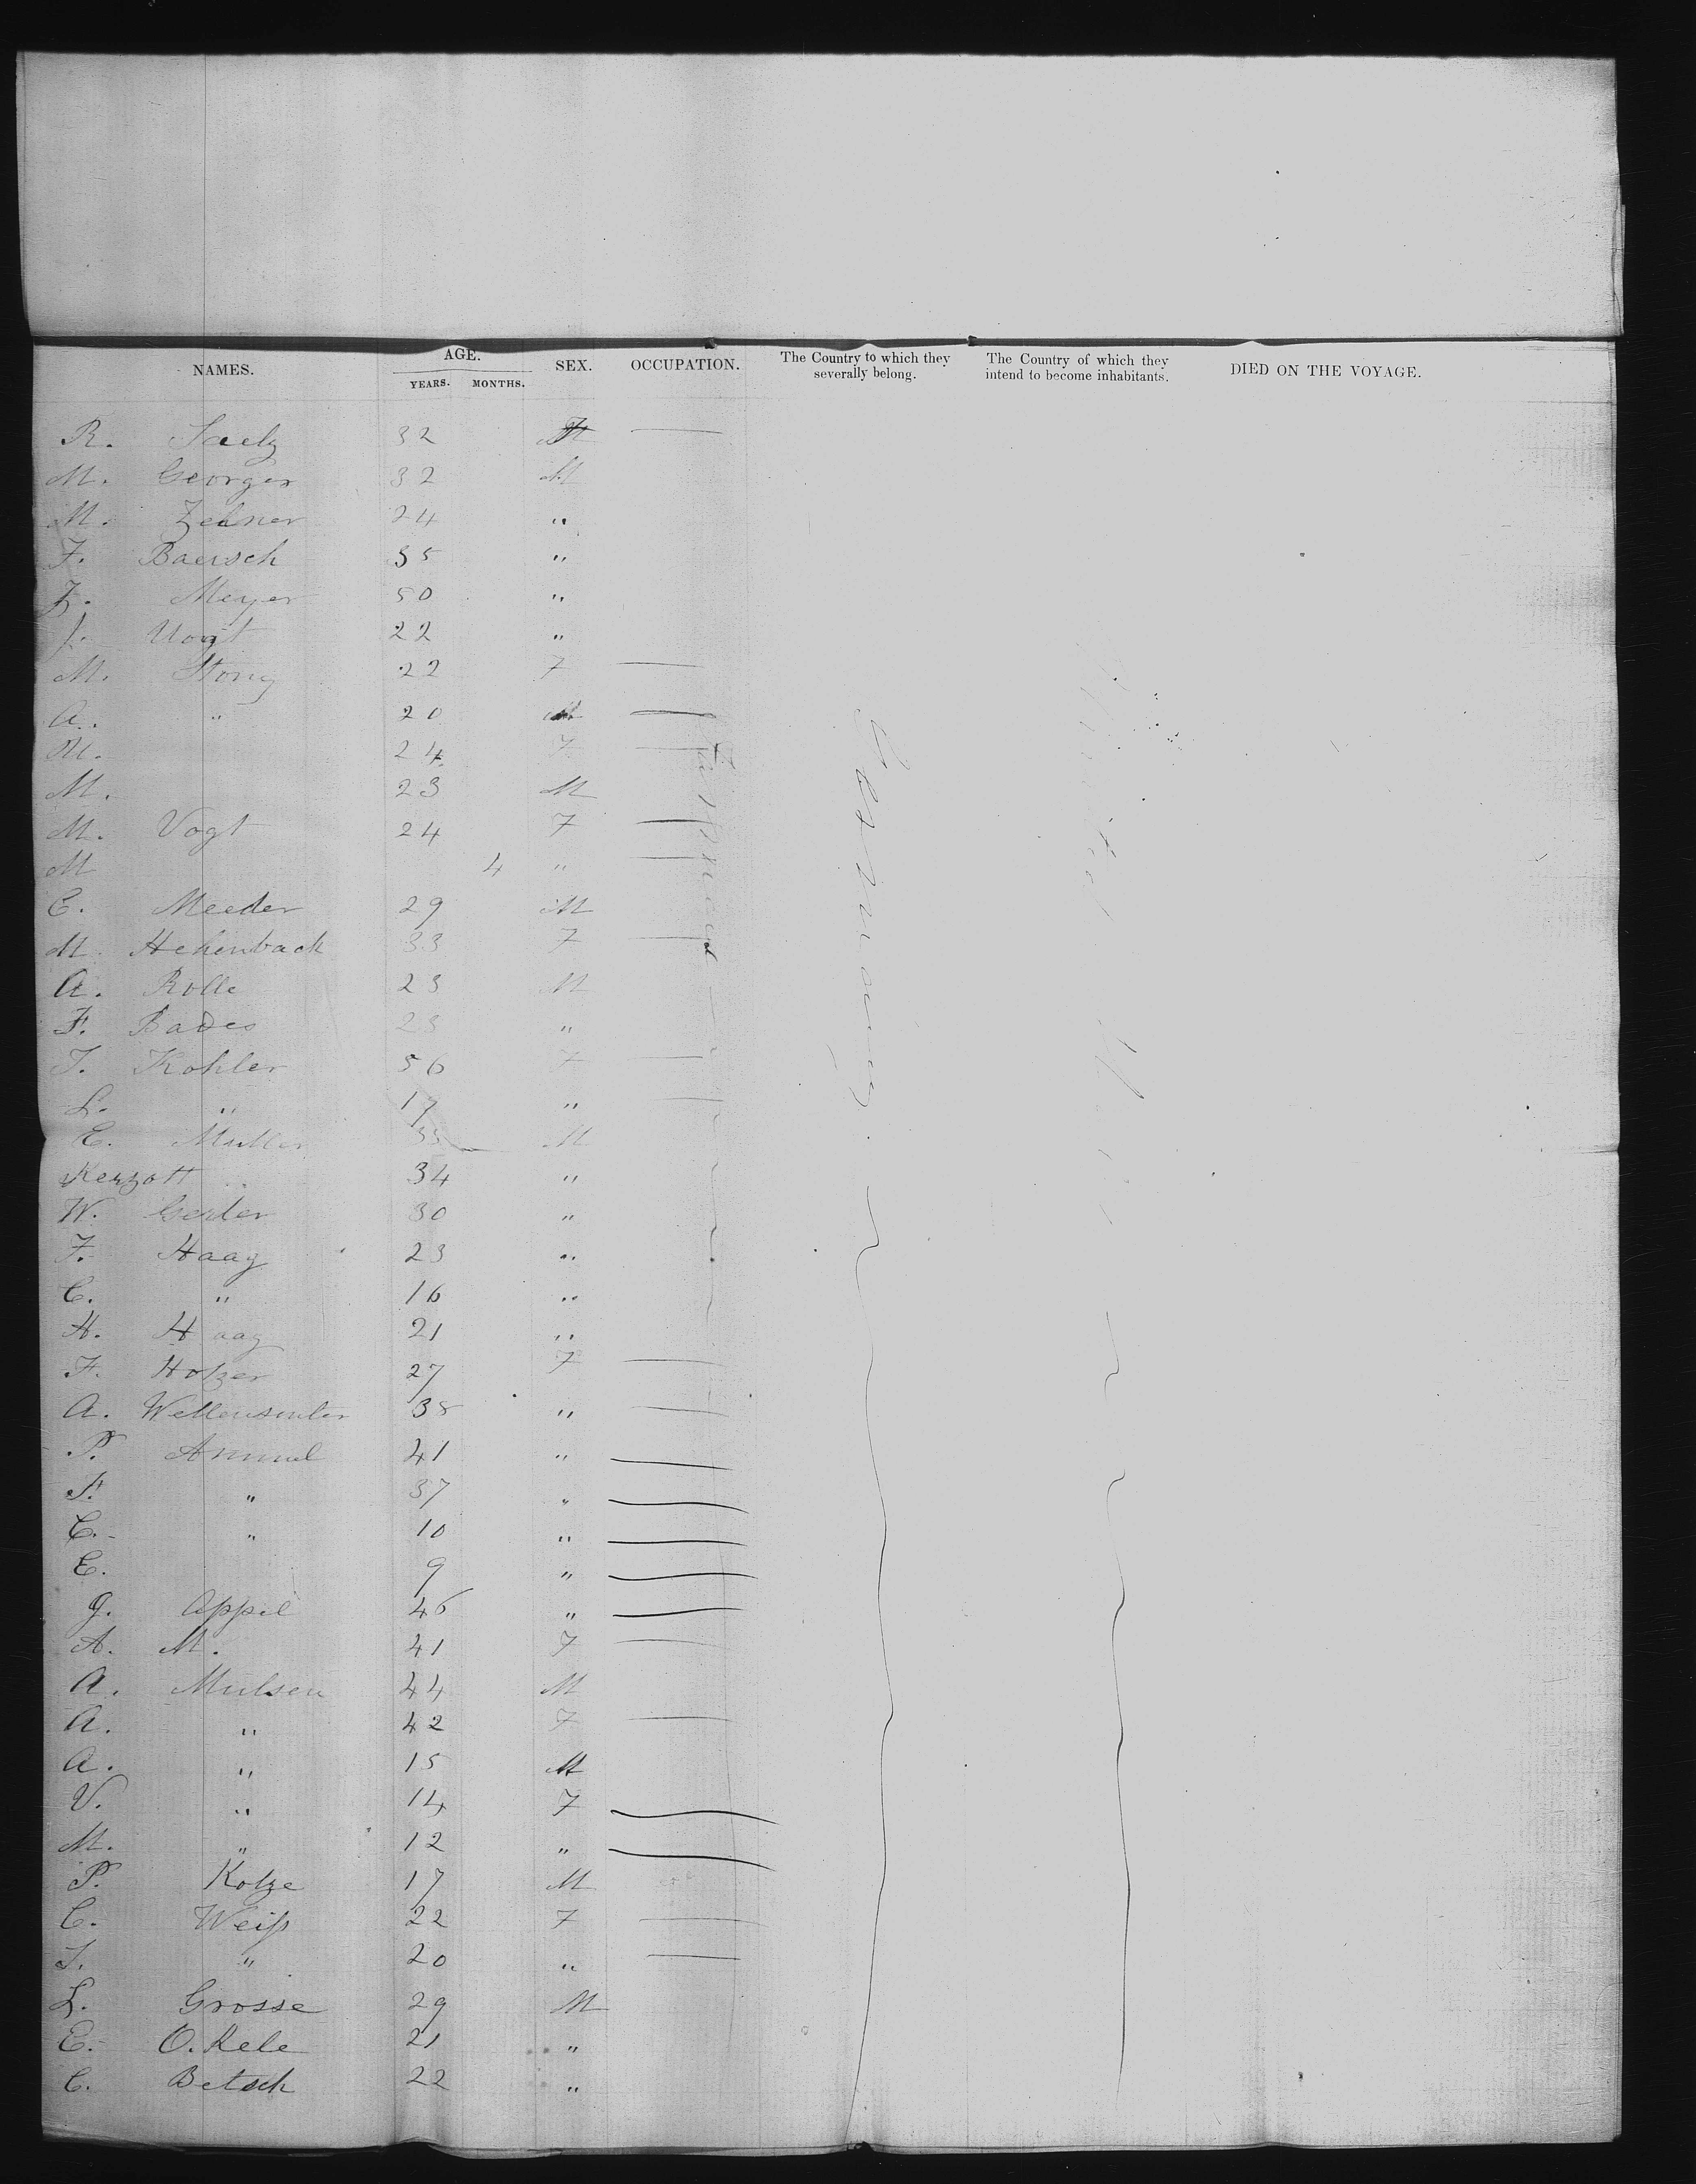 NAMES. AGE. SEX. OCCUPATION. The Country to which they severally belong. The Country of which they intend to become inhabitants. DIED ON THE VOYAGE.
YEARS. MONTHS.
R. Saelz 32
M. Georger 32 M
M. Zehner 24 "
F. Baersch 35 "
Z. Meyer 50 "
J. Vogt 22 "
M. Stong 22 F
A. " 20 M
M. 24 F
M. 23 M
M. Vogt 24 F
M 4 "
C. Meeder 29 M
M. Hehenback 33 F
A. Rolle 23 M
F. Bades 23 "
T. Kohler 56 F
L. " 17 "
E. Muller 33 M
Kerzott 34 "
W. Gerler 30 "
F. Haag 23 "
C. " 16 "
H. Haag 21 "
F. Holzer 27 F
A. 38 "
P. Ammel 41 "
S. " 37 "
C. " 10 "
E. 9 "
G. Appel 46 "
A. M. 41 F
A. Mulsen 44 M
A. " 42 F
A. " 15 M
V. " 14 F
M. " 12 "
P. Kolze 17 M
C. Weiſs 22 F
T. " 20 "
L. Grosse 29 M
E. O. Kele 21 "
C. Betsch 22 "
Farmer
Germany